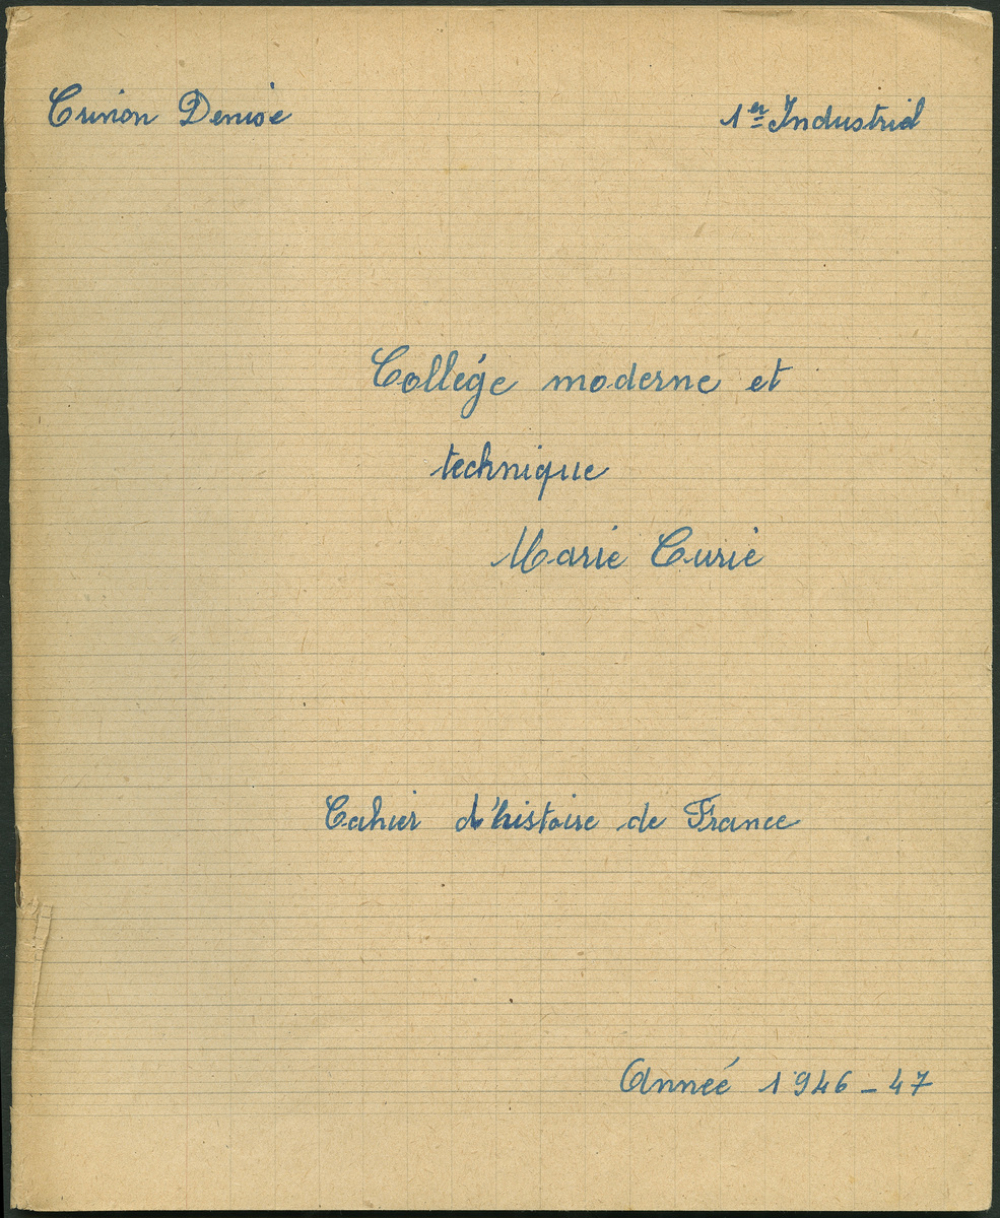 Crinion Denise
1er Industriel
Collége moderne et
technique
Marie Curie
Cahier d'histoire de France
Anneé 1946-47